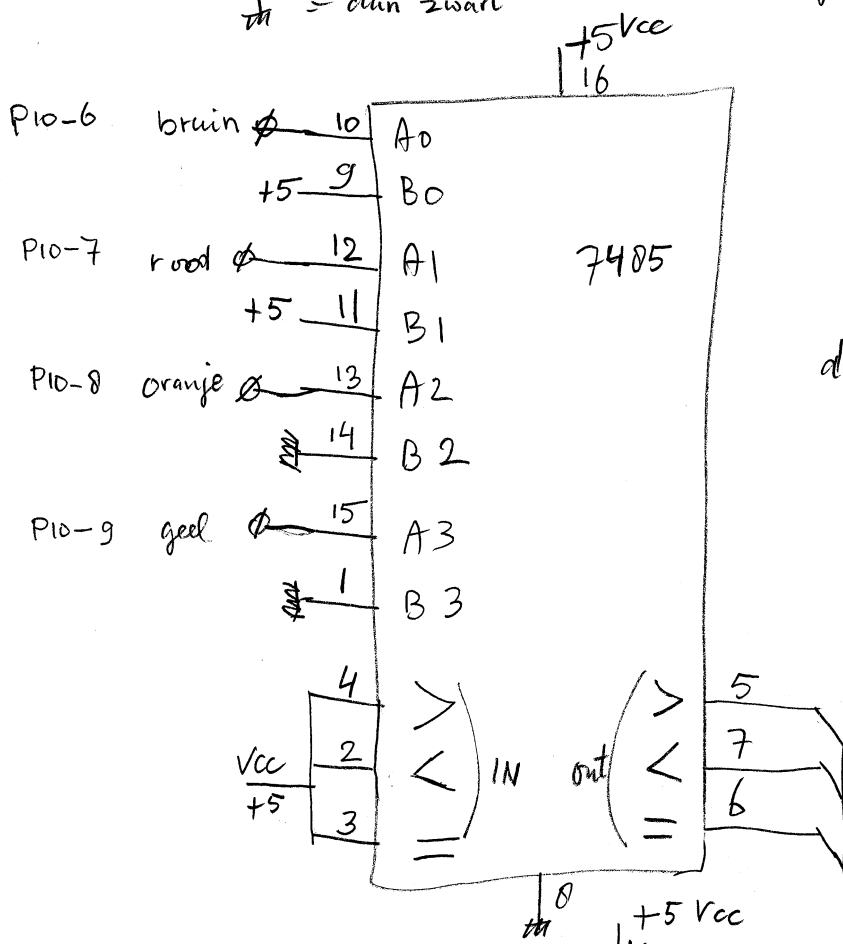 = dun zwart
+5 Vcc
16
P10-6 bruin 10 A0
+5 9 B0
P10-7 rood 12 A1
7485
+5 11 B1
P10-8 oranje 13 A2
d
14 B2
P10-9 geel 15 A3
1 B3
4 > > 5
Vcc 2 < IN out < 7
+5
3 = = 6
8
+5 Vcc